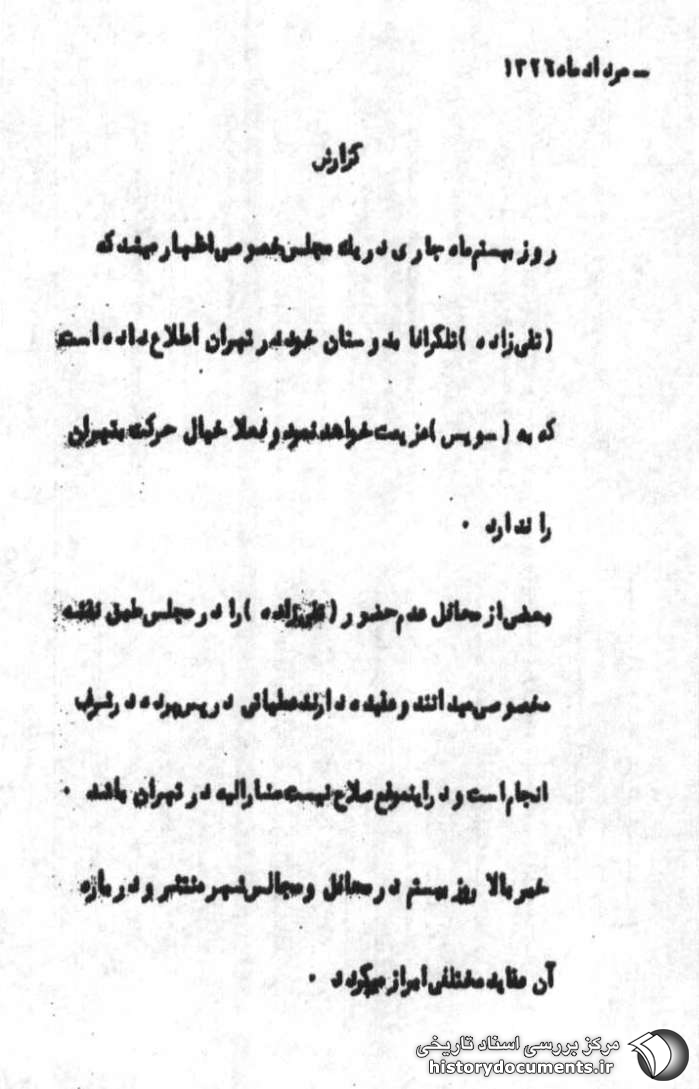 ـ مرداد ماه ۱۳۲۶
گزارش
روز بیستم ماه جاری در یك مجلس خصوصی اظهار میشد که
(تقی زاده) تلگرافا بدوستان خود در تهران اطلاع داده است
که به (سویس) عزیمت خواهد نمود و فعلا خیال حرکت بتهران
را ندارد .
بعضی از محافل عدم حضور (تقی زاده) را در مجلس طبق نقشه
مخصوصی میدانند و عقیده دارند عملیاتی در پس پرده در شرف
انجام است و در اینموقع صلاح نیست مشارالیه در تهران باشد .
خبر بالا روز بیستم در محافل و مجالس شهر منتشر و در باره
آن عقاید مختلفی ابراز میگردد .
مرکز بررسی اسناد تاریخی
historydocuments.ir